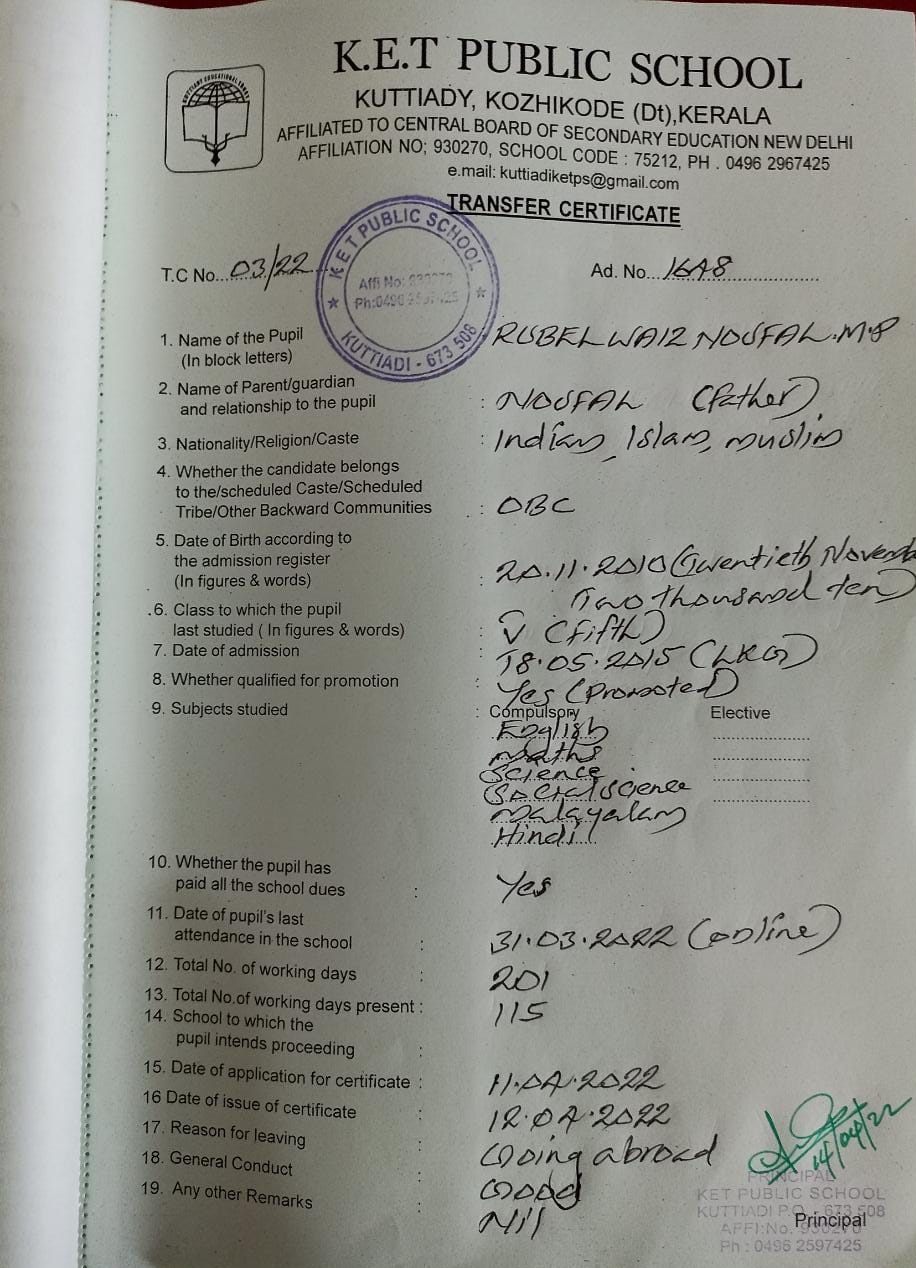 KUTTIADY EDUCATIONAL TRUST
K.E.T PUBLIC SCHOOL
KUTTIADY, KOZHIKODE (Dt),KERALA
AFFILIATED TO CENTRAL BOARD OF SECONDARY EDUCATION NEW DELHI
AFFILIATION NO; 930270, SCHOOL CODE : 75212, PH . 0496 2967425
e.mail: kuttiadiketps@gmail.com
TRANSFER CERTIFICATE
KET PUBLIC SCHOOL
Affi No: 930270
KUTTIADI - 673 508
T.C No...03/22
Ad. No...1648
1. Name of the Pupil
(In block letters)
RUBEL WAIZ NOUFAL.M.P
2. Name of Parent/guardian
and relationship to the pupil : NOUFAL (father)
3. Nationality/Religion/Caste : Indian, Islam, muslim
4. Whether the candidate belongs
to the/scheduled Caste/Scheduled
Tribe/Other Backward Communities : OBC
5. Date of Birth according to
the admission register
(In figures & words) : 20.11.2010 (Twentieth Novembe
Two thousand ten)
.6. Class to which the pupil
last studied ( In figures & words) : V (fifth)
7. Date of admission : 18.05.2015 (LKG)
8. Whether qualified for promotion : Yes (Promoted)
9. Subjects studied : Compulsory Elective
English
Maths
Science
Social science
Malayalam
Hindi
10. Whether the pupil has
paid all the school dues : Yes
11. Date of pupil's last
attendance in the school : 31.03.2022 (online)
12. Total No. of working days : 201
13. Total No.of working days present : 115
14. School to which the
pupil intends proceeding :
15. Date of application for certificate : 11.04.2022
16 Date of issue of certificate : 12.04.2022
17. Reason for leaving : Going abroad
18. General Conduct : Good
19. Any other Remarks : Nil
14/04/22
PRINCIPAL
KET PUBLIC SCHOOL
KUTTIADI P.O. - 673 508
AFFI:No. 930270
Principal
Ph : 0496 2597425